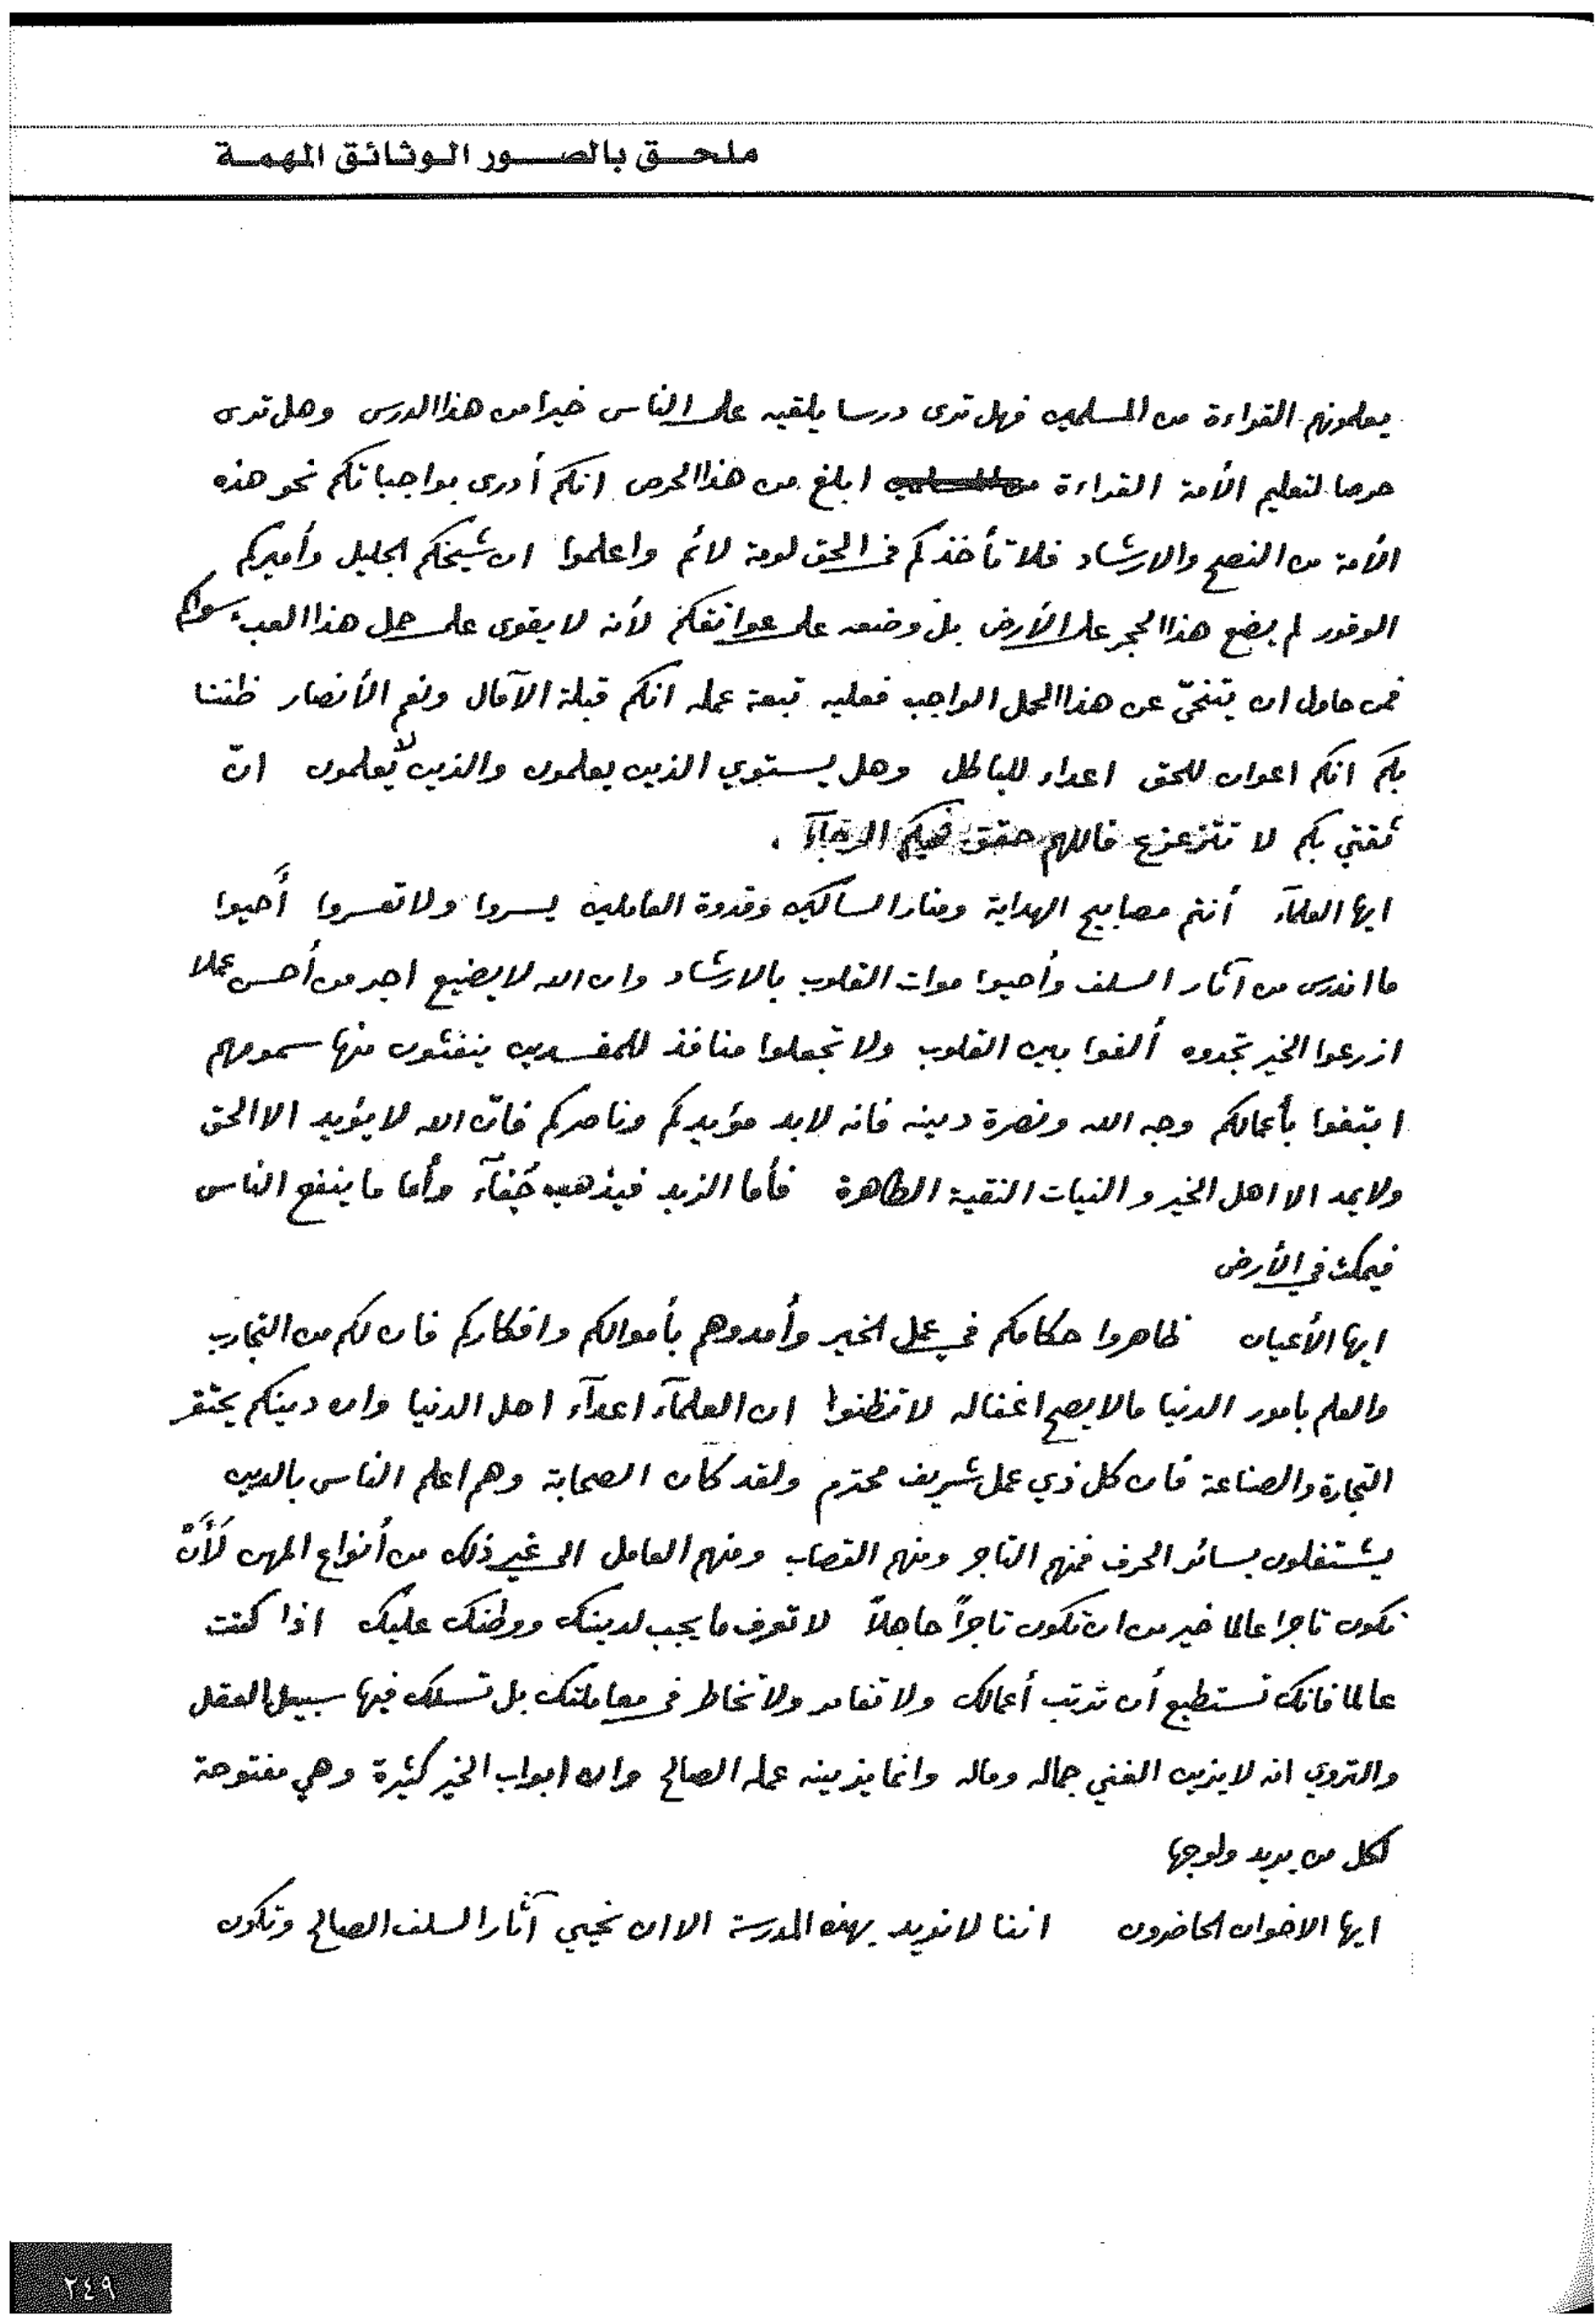 ملحق بالصور الوثائق المهمة
يعلمونهم القراءة من المسلمين فهل ترى درسا يلقيه على الناس خيرا من هذا الدرس وهل ترى
حرصا لتعليم الأمة القراءة ابلغ من هذا الحرص انكم أدرى بواجباتكم نحو هذه
الأمة من النصح والارشاد فلا تأخذكم في الحق لومة لائم واعلموا ان شيخكم الجليل وأميركم
الوقور لم يضع هذا الحجر على الأرض بل وضعه على عواتقكم لأنه لا يقوى على حمل هذا العبء سواكم
فمن حاول ان يتنحّى عن هذا الحمل الواجب فعليه تبعة عمله انكم قبلة الآمال ونعم الأنصار ظننا
بكم انكم اعوان للحق اعداء للباطل وهل يستوي الذين يعلمون والذين لا يعلمون انّ
ثقتي بكم لا تتزعزع فاللهم حقق فيكم الرجآء .
ايها العلمآء أنتم مصابيح الهداية ومنار السالكين وقدوة العاملين يسروا ولا تعسروا أَحيوا
ما اندرس من آثار السلف وأحيوا موات القلوب بالارشاد وان الله لا يضيع اجر من أحسن عملا
ازرعوا الخير تجدوه ألفوا بين القلوب ولا تجعلوا منافذ للمفسدين ينفثون منها سمومهم
ابتغوا بأعمالكم وجه الله ونصرة دينه فانه لابد مؤيدكم وناصركم فانّ الله لا يؤيد الا الحق
ولا يمد الا اهل الخير والنيات النقية الطاهرة فأما الزبد فيذهب جُفآء وأما ما ينفع الناس
فيمكث في الأرض
ايها الأعيان ظاهروا حكامكم في عمل الخير وأمدوهم بأموالكم وافكاركم فان لكم من التجارب
والعلم بامور الدنيا مالا يصح اغفاله لا تظنوا ان العلمآء اعدآء اهل الدنيا وان دينكم يحتقر
التجارة والصناعة فان كل ذي عمل شريف محترم ولقد كان الصحابة وهم اعلم الناس بالدين
يشتغلون بسائر الحرف فمنهم التاجر ومنهم القصاب ومنهم العامل الى غير ذلك من أنواع المهن لَأَنْ
تكون تاجرا عالما خير من ان تكون تاجراً جاهلاً لا تعرف ما يجب لدينك ووطنك عليك اذا كنت
عالما فانك تستطيع أن ترتب أعمالك ولا تغامر ولا تخاطر في معاملتك بل تسلك فيها سبيل العقل
والتروي انه لا يزين الغني جماله وماله وانما يزينه عمله الصالح وان ابواب الخير كثيرة وهي مفتوحة
لكل من يريد ولوجها
ايها الاخوان الحاضرون اننا لا نريد بهذه المدرسة الا ان نحيي آثار السلف الصالح وتكون
٢٤٩